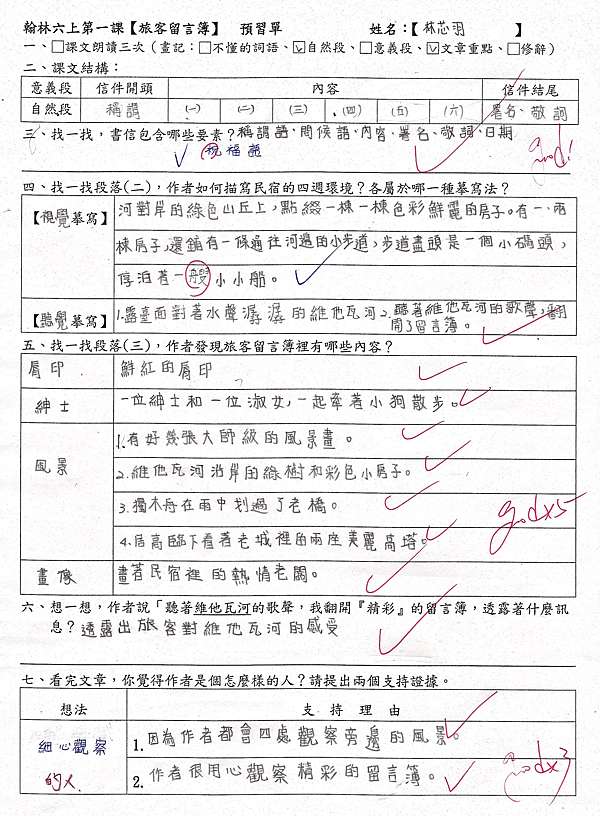 翰林六上第一課【旅客留言簿】 預習單 姓名:【林芯羽 】
一、□課文朗讀三次(畫記:□不懂的詞語、☑自然段、□意義段、☑文章重點、□修辭)
二、課文結構:
意義段 信件開頭 內容 信件結尾
自然段 稱謂 (一) (二) (三) (四) (五) (六) 署名、敬詞
三、找一找,書信包含哪些要素?稱謂語、問候語、內容、署名、敬詞、日期
祝福語
good!
四、找一找段落(二),作者如何描寫民宿的四週環境?各屬於哪一種摹寫法?
【視覺摹寫】 河對岸的綠色山丘上,點綴一棟一棟色彩鮮麗的房子。有一、兩
棟房子,還鋪有一條通往河邊的小步道,步道盡頭是一個小碼頭,
停泊著一艘小小船。
【聽覺摹寫】 1.露臺面對著水聲潺潺的維他瓦河 2.聽著維他瓦河的歌聲,翻
開了留言簿。
五、找一找段落(三),作者發現旅客留言簿裡有哪些內容?
唇印 鮮紅的唇印
紳士 一位紳士和一位淑女,一起牽著小狗散步。
風景 1.有好幾張大師級的風景畫。
2.維他瓦河沿岸的綠樹和彩色小房子。
3.獨木舟在雨中划過了老橋。
4.居高臨下看著老城裡的兩座美麗高塔。
goodx5
畫像 畫著民宿裡的熱情老闆。
六、想一想,作者說「聽著維他瓦河的歌聲,我翻開『精彩』的留言簿,透露著什麼訊
息?透露出旅客對維他瓦河的感受
七、看完文章,你覺得作者是個怎麼樣的人?請提出兩個支持證據。
想法 支持理由
細心觀察 1.因為作者都會四處觀察旁邊的風景。
的人 2.作者很用心觀察精彩的留言簿。
goodx3